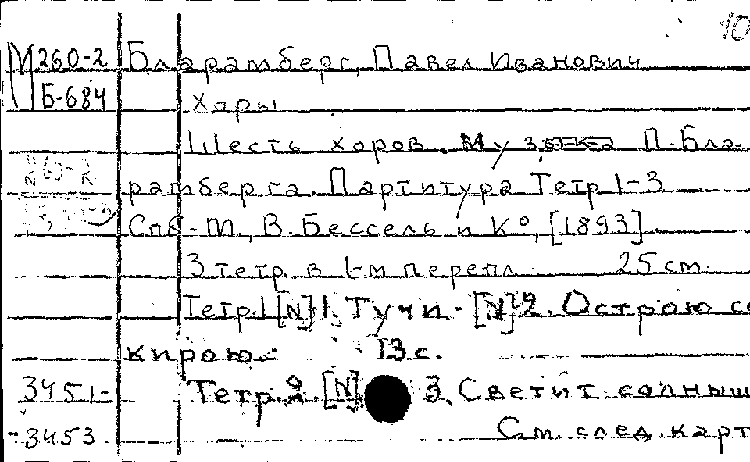 10
М 260-2 Бларамберг, Павел Иванович
Б-684 Хоры
Шесть хоров. Музыка П. Бла-
рамберга. Партитура Тетр 1-3
Спб-М, В. Бессель и К°, [1893]
3 тетр. в 1-м перепл. 25 cm.
Тетр 1 [N] 1. Тучи - [N] 2. Острою се
кирою. 13 с.
3451- Тетр. 2. [N] 3. Светит солныш
3453. См. след. карт